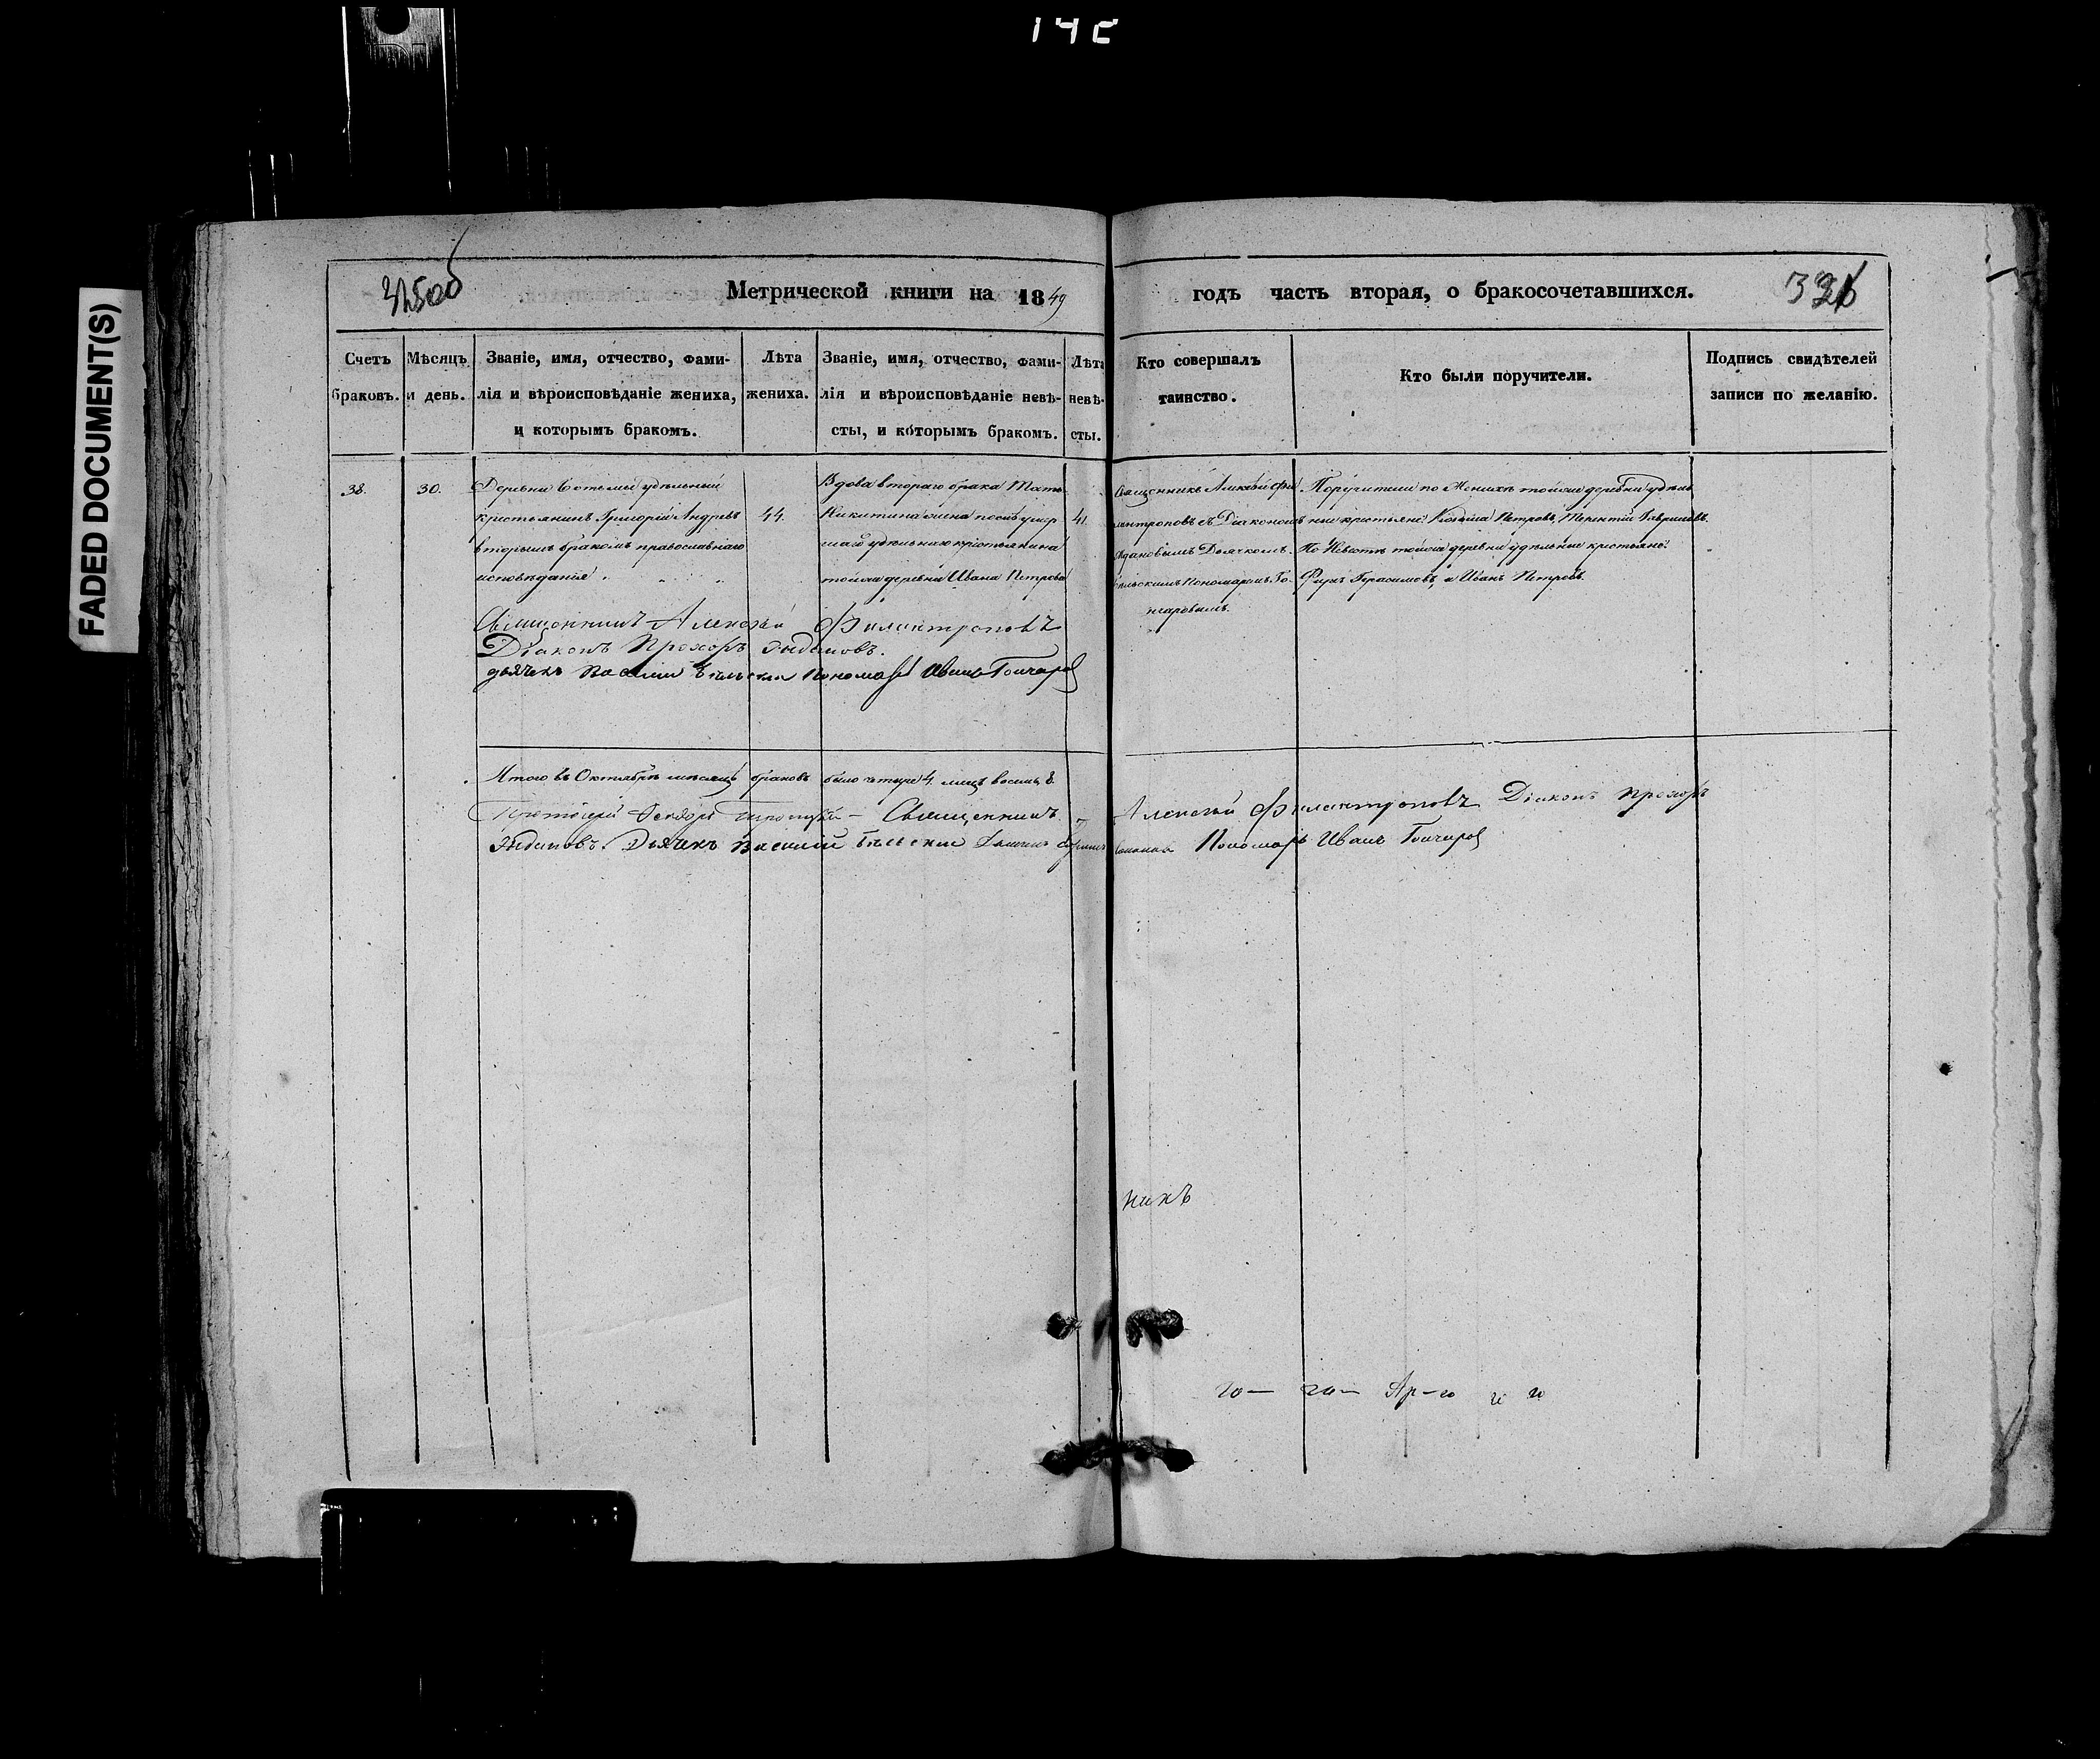 142
FADED DOCUMENT(S)
Метрической книги на 1849
годъ часть вторая, о бракосочетавшихся.
Счетъ браковъ.
Мѣсяцъ и день.
Званіе, имя, отчество, фами-
лія и вѣроисповѣданіе жениха,
и которымъ бракомъ.
Лѣта
жениха.
Званіе, имя, отчество, фами-
лія и вѣроисповѣданіе невѣ-
сты, и которымъ бракомъ.
Лѣта
невѣ-
сты.
Кто совершалъ
таинство.
Кто были поручители.
Подпись свидѣтелей
записи по желанію.
38.
30.
Деревни удѣльный
крестьянинъ Григорій Андреевъ
вторымъ бракомъ православнаго
исповѣданія.
44.
Вдова втораго брака Тать
Никитина жена послѣ умер
шаго удѣльнаго крестьянина
тойже деревни Ивана Петрова
41.
Священникъ Алексѣй Фи
лантроповъ съ Діакономъ
Ждановымъ Дьячкомъ
Бѣльскимъ Пономаремъ Го-
нчаровымъ.
Поручители по Женихѣ тойже деревни удѣль
ные крестьяне: Козьма Петровъ, Терентій Гавриловъ.
По Невѣстѣ тойже деревни удѣльные крестьяне:
Герасимовъ, и Иванъ Петровъ.
Священникъ Алексѣй Филантроповъ
Діаконъ Прохоръ Ждановъ.
дьячекъ Василій Бѣльскій Пономарь Иванъ Гончаровъ
Итого въ Октябрѣ мѣсяцѣ браковъ было четыре 4. лицъ восемь 8.
Протоіерей Феодоръ – Священникъ Алексѣй Филантроповъ Діаконъ Прохоръ
Ждановъ. Дьячекъ Василій Бѣльскій Пономарь Иванъ Гончаровъ
никъ
го— го— Ар—го го